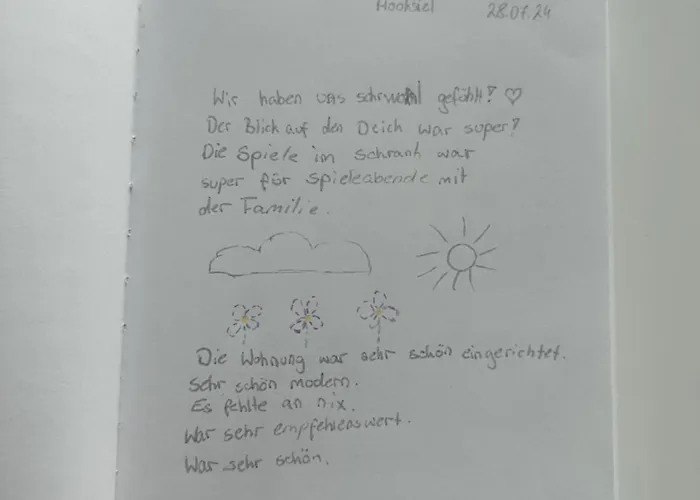 Hooksiel 28.07.24
Wir haben uns sehr wohl gefühlt! ♡
Der Blick auf den Deich war super!
Die Spiele im Schrank war
super für Spieleabende mit
der Familie.
Die Wohnung war sehr schön eingerichtet.
Sehr schön modern.
Es fehlte an nix.
War sehr empfehlenswert.
War sehr schön.